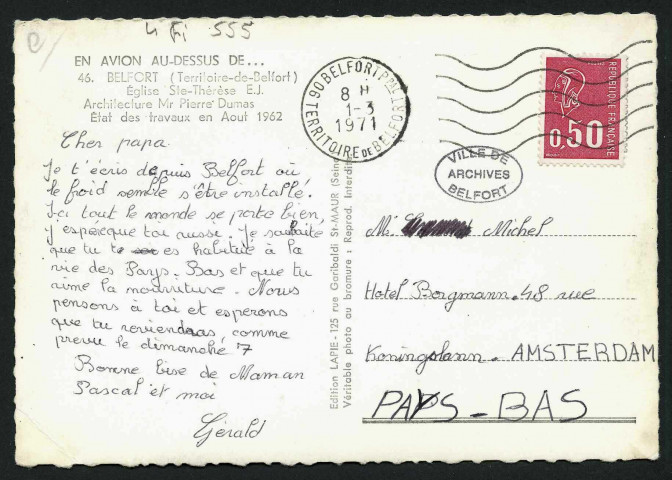 4 Fi 555
EN AVION AU-DESSUS DE...
46. BELFORT (Territoire-de-Belfort)
Église Ste-Thérèse E.J.
Architecture Mr Pierre Dumas
État des travaux en Aout 1962
Cher papa.
Je t'écris depuis Belfort où
le froid semble s'être installé.
Ici tout le monde se porte bien,
j'espère que toi aussi. Je souhaite
que tu t'es habitué à la
vie des Pays-Bas et que tu
aime la nourriture. Nous
pensons à toi et esperons
que tu reviendras comme
prevu le dimanche 7
Bonne bise de Maman
Pascal et moi
Gérald
Edition LAPIE-125 rue Garibaldi St-MAUR (Seine
Véritable photo au bromure : Reprod. Interdite
90 BELFORT Pal
8 H
1-3
1971
TERRITOIRE DE BELFORT
RÉPUBLIQUE FRANÇAISE
0,50
VILLE DE
ARCHIVES
BELFORT
Mr Michel
Hotel Borgmann.48 rue
Koningslann. AMSTERDAM
PAYS-BAS